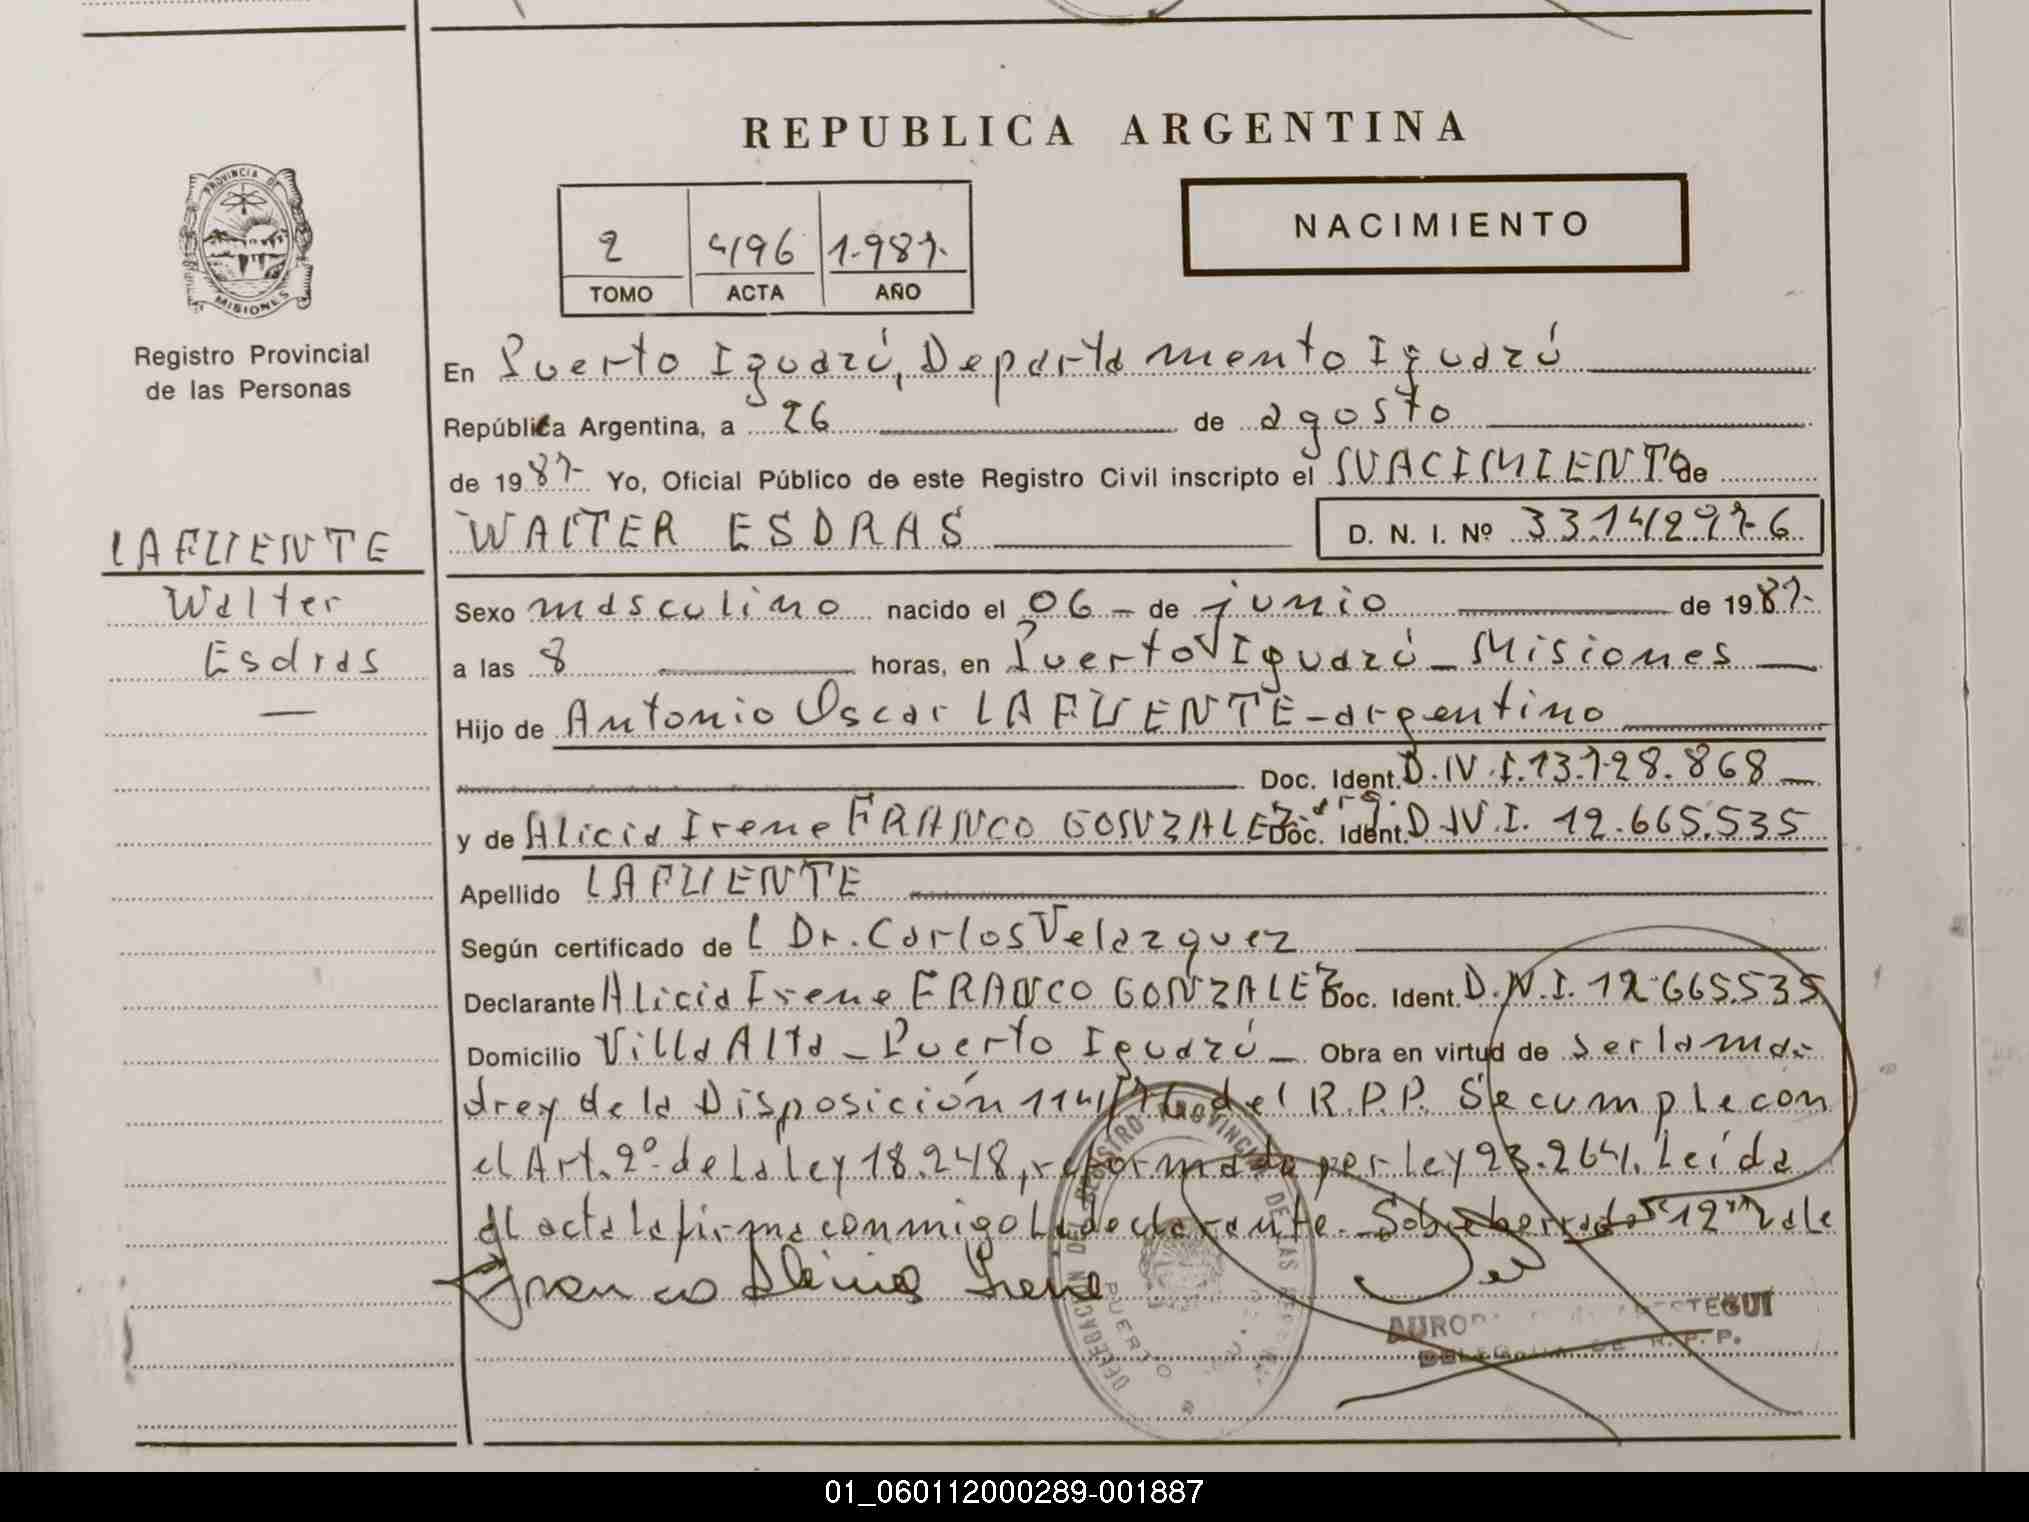 REPUBLICA ARGENTINA
PROVINCIA DE
MISIONES
Registro Provincial
de las Personas
2 496 1.987
TOMO ACTA AÑO
NACIMIENTO
En Puerto Iguazú, Departamento Iguazú
República Argentina, a 26 de agosto
de 1987 Yo, Oficial Público de este Registro Civil inscripto el NACIMIENTO de
LAFUENTE
Walter
Esdras
WALTER ESDRAS D. N. I. Nº 33.142.976
Sexo masculino nacido el 06 - de junio de 1987
a las 8 horas, en Puerto Iguazú - Misiones
Hijo de Antonio Oscar LAFUENTE - argentino
Doc. Ident. D.N.I. 13.728.868
y de Alicia Irene FRANCO GONZALEZ - arg. Doc. Ident. D.N.I. 12.665.535
Apellido LAFUENTE
Según certificado de L Dr. Carlos Velazquez
Declarante Alicia Irene FRANCO GONZALEZ Doc. Ident. D.N.I. 12.665.535
Domicilio Villa Alta - Puerto Iguazú - Obra en virtud de ser la ma-
dre y de la Disposición 114/76 del R.P.P. Se cumple con
el Art. 2º de la ley 18.248, reformada por ley 23.264. Leída
el acta la firma conmigo la declarante. Sobreborrado "12" vale
Franco Alicia Irene
DELEGACION DEL REGISTRO PROVINCIAL DE LAS
PUERTO
DELEGADA DE R. P. P.
01_060112000289-001887